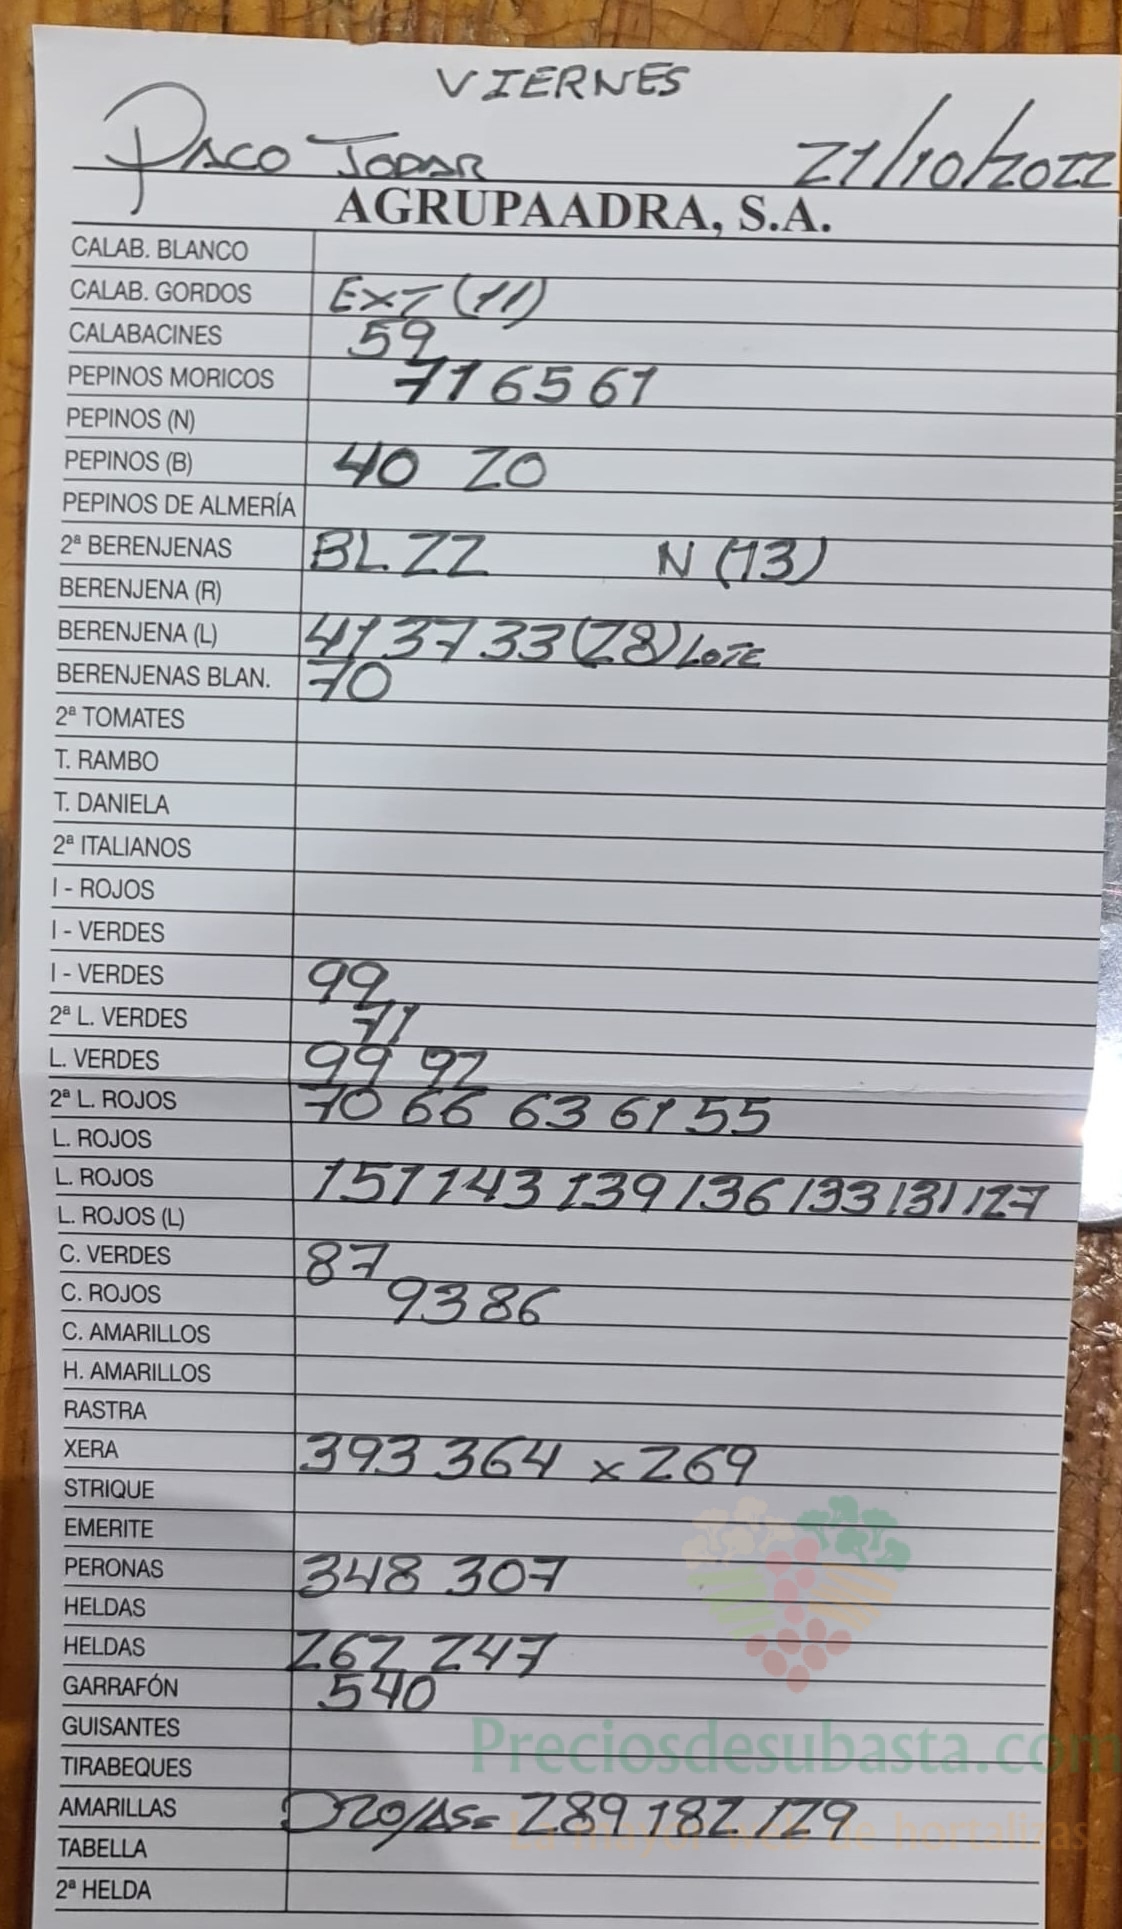 VIERNES
PACO JODAR 21/10/2022
AGRUPAADRA, S.A.
CALAB. BLANCO
CALAB. GORDOS EXT (11)
CALABACINES 59
PEPINOS MORICOS 71 65 61
PEPINOS (N)
PEPINOS (B) 40 20
PEPINOS DE ALMERÍA
2ª BERENJENAS BL 22 N (13)
BERENJENA (R)
BERENJENA (L) 41 37 33 (28) LOTE
BERENJENAS BLAN. 70
2ª TOMATES
T. RAMBO
T. DANIELA
2ª ITALIANOS
I - ROJOS
I - VERDES
I - VERDES 99
2ª L. VERDES 71
L. VERDES 99 92
2ª L. ROJOS 70 66 63 61 55
L. ROJOS
L. ROJOS 151 143 139 136 133 131 127
L. ROJOS (L)
C. VERDES 87
C. ROJOS 93 86
C. AMARILLOS
H. AMARILLOS
RASTRA
XERA 393 364 x 269
STRIQUE
EMERITE
PERONAS 348 307
HELDAS
HELDAS 262 247
GARRAFÓN 540
GUISANTES
Preciosdesubasta.com
TIRABEQUES
AMARILLAS 289 182 129
La mayor web de hortalizas
TABELLA
2ª HELDA